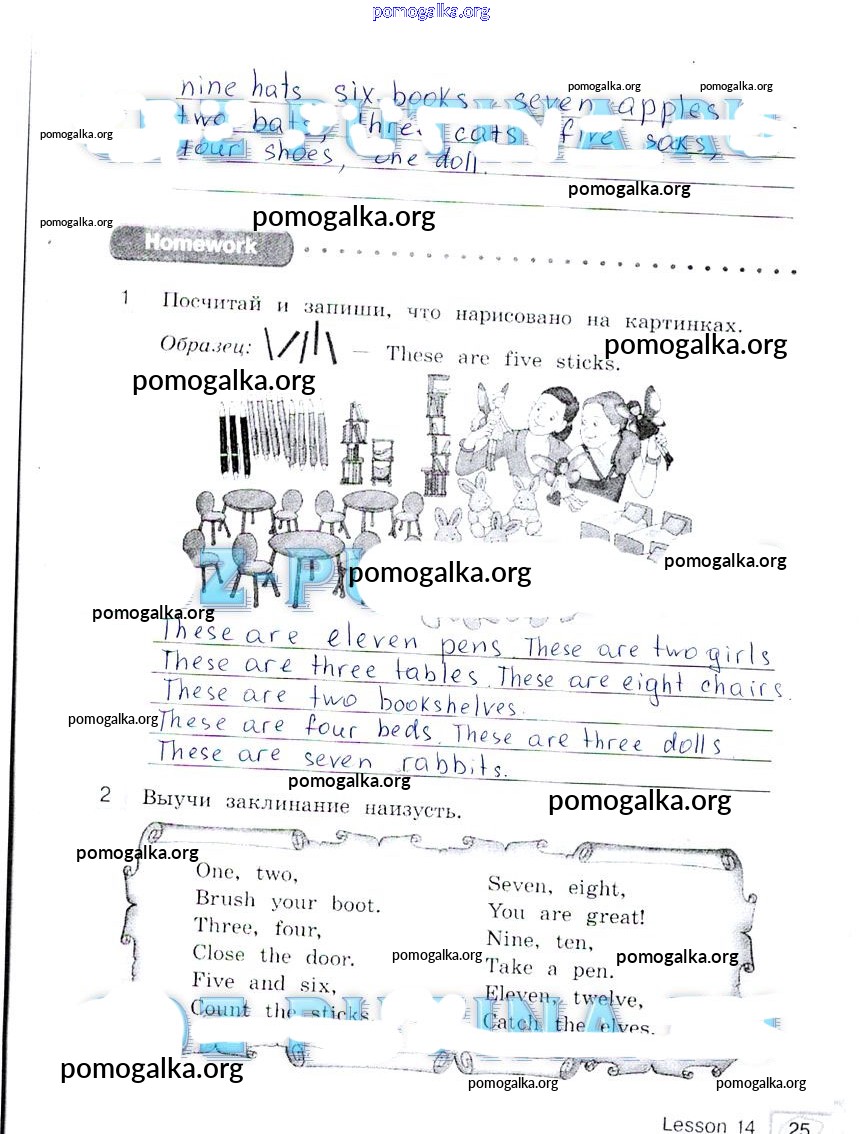 pomogalka.org
nine hats six books, seven apples
pomogalka.org pomogalka.org
two bats, three cats, five
pomogalka.org
four shoes, one doll.
pomogalka.org
pomogalka.org pomogalka.org
Homework
1 Посчитай и запиши, что нарисовано на картинках.
Образец: — These are five sticks.
pomogalka.org
pomogalka.org
pomogalka.org
pomogalka.org
pomogalka.org
These are eleven pens. These are two girls
These are three tables. These are eight chairs.
These are two bookshelves.
pomogalka.org
These are four beds. These are three dolls
These are seven rabbits.
pomogalka.org
2 Выучи заклинание наизусть.
pomogalka.org
pomogalka.org
One, two,
Brush your boot.
Three, four,
Close the door.
Five and six,
Count the sticks.
Seven, eight,
You are great!
Nine, ten,
Take a pen.
Eleven, twelve,
Catch the elves.
pomogalka.org
pomogalka.org
pomogalka.org
pomogalka.org
pomogalka.org
Lesson 14 25